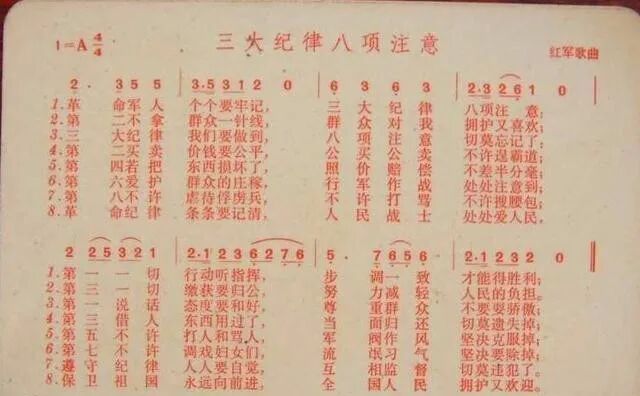 1=A 4/4 三大纪律八项注意 红军歌曲
2 3 5 3·5 3 1 2 0 6 3 6 3 2·3 2 6 1 0
1.革命军人个个要牢记 三大纪律八项注意;
2.第二不拿群众一针线 群众对我拥护又喜欢;
3.三大纪律我们要做到 八项注意切莫忘记了;
4.第二买卖价钱要公平 公买公卖不许逞霸道;
5.第四若把东西损坏了 照价赔偿不差半分毫;
6.第六爱护群众的庄稼 行军作战处处注意到;
7.第八不许虐待俘虏兵 不许打骂不许搜腰包;
8.革命纪律条条要记清 人民战士处处爱人民;
2 2 5 3 2 1 2·1 2 3 6 2 7 6 5· 7 6 5 6 2·1 2 3 1 0
1.第一一切行动听指挥 步调一致才能得胜利;
2.第三一切缴获要归公 努力减轻人民的负担。
3.第一说话态度要和好 尊重群众不要耍骄傲;
4.第三借人东西用过了 当面归还切莫遗失掉;
5.第五不许打人和骂人 军阀作风坚决克服掉;
6.第七不许调戏妇女们 流氓习气坚决要除掉;
7.遵守纪律人人要自觉 互相监督切莫违犯了;
8.保卫祖国永远向前进 全国人民拥护又欢迎。